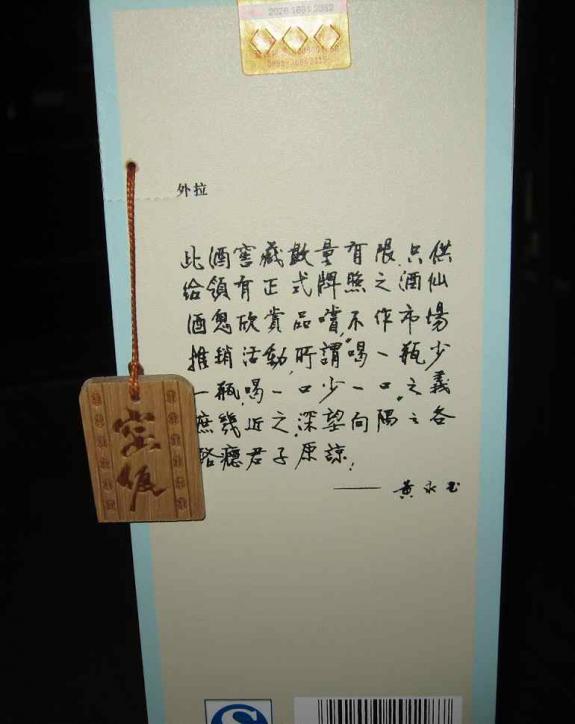 外拉
此酒窖藏數量有限,只供
給領有正式牌照之酒仙
酒鬼欣賞品嚐,不作市場
推销活動,所謂喝一瓶少
一瓶,喝一口少一口,之義
庶幾近之,深望向隅之各
路癮君子原諒,
——黄永玉